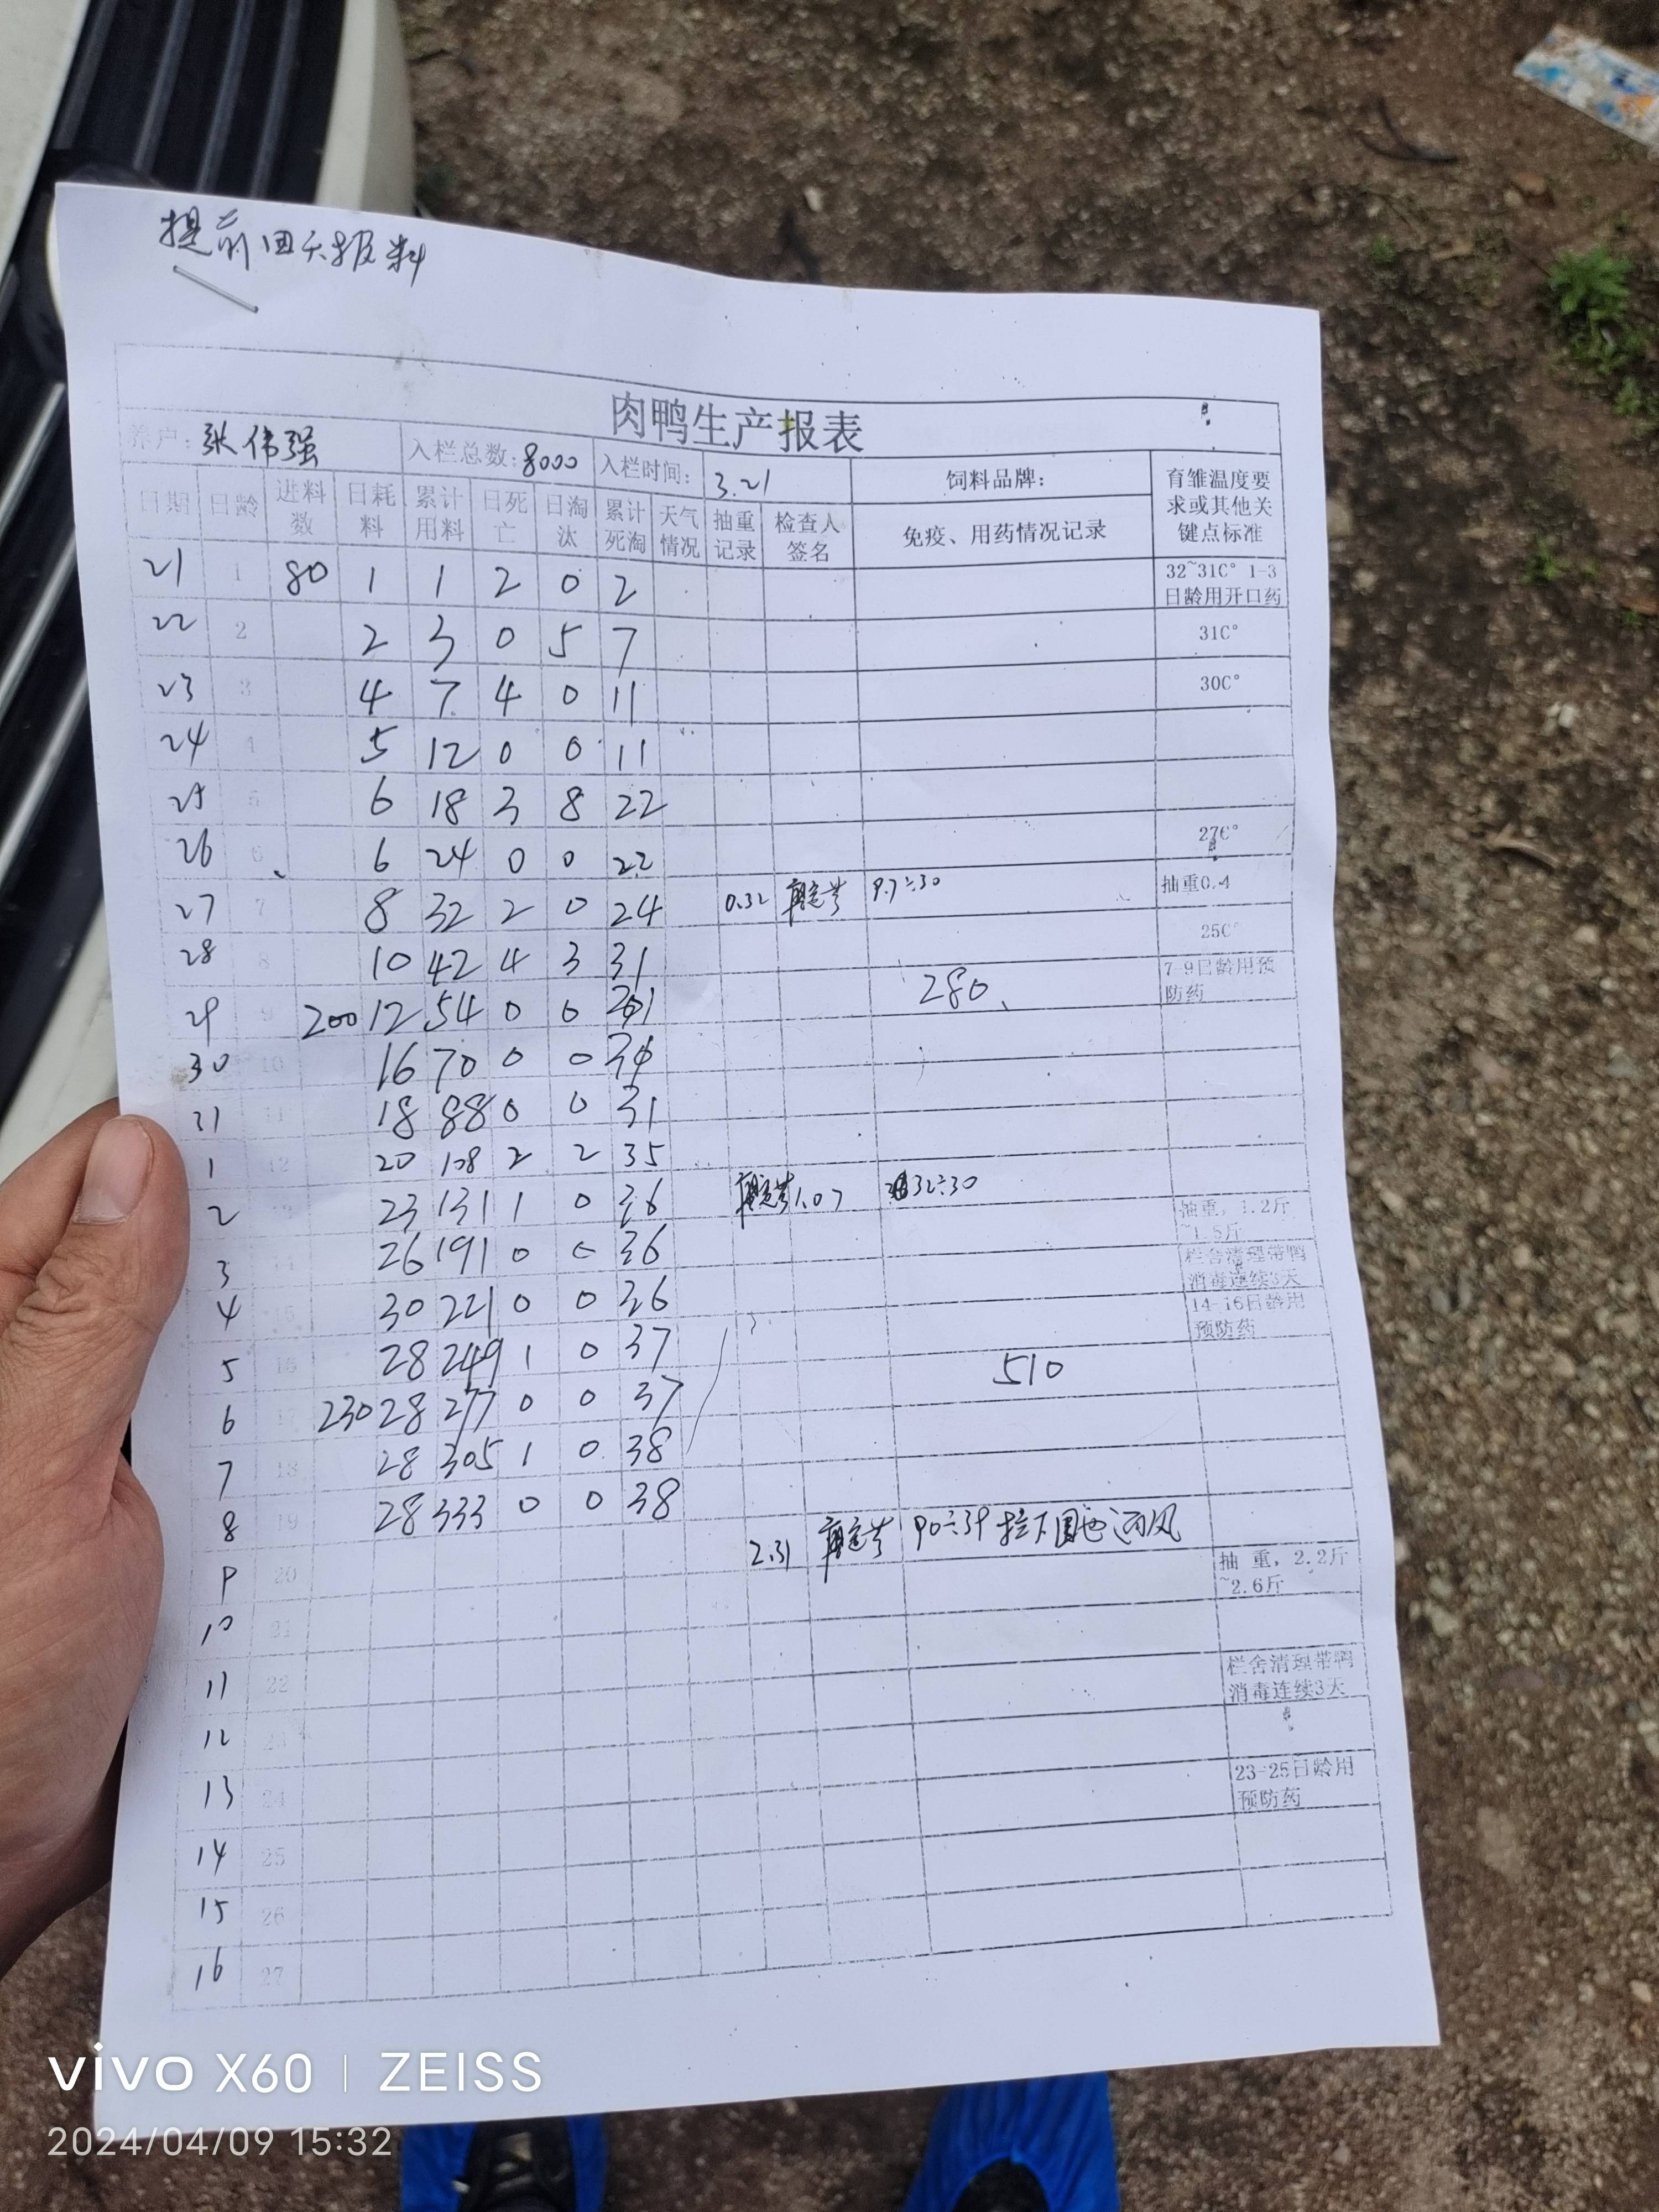 提前四天报料
肉鸭生产报表
养户: 张伟强 入栏总数: 8000 入栏时间: 3.21 饲料品牌: 育雏温度要求或其他关键点标准
日期 日龄 进料数 日耗料 累计用料 日死亡 日淘汰 累计死淘 天气情况 抽重记录 检查人签名 免疫、用药情况记录
21 1 80 1 1 2 0 2 32~31C° 1-3日龄用开口药
22 2 2 3 0 5 7 31C°
23 3 4 7 4 0 11 30C°
24 4 5 12 0 0 11
25 5 6 18 3 8 22
26 6 6 24 0 0 22 27C°
27 7 8 32 2 0 24 0.32 9.7÷30 抽重0.4
28 8 10 42 4 3 31 25C°
29 9 200 12 54 0 0 280 7-9日龄用预防药
30 10 16 70 0 0
11 18 88 0 0 31
1 12 20 108 2 2 35
2 13 23 131 1 0 36 1.07 32÷30 抽重, 1.2斤~1.5斤
3 14 26 191 0 0 36 栏舍清理带鸭消毒连续3天
4 15 30 221 0 0 36 14-16日龄用预防药
5 16 28 249 1 0 37
6 17 230 28 277 0 0 37 510
7 18 28 305 1 0 38
8 19 28 333 0 0 38
9 20 2.31 90÷39 抽 重, 2.2斤~2.6斤
10 21
11 22 栏舍清理带鸭消毒连续3天
12 23
13 24 23-25日龄用预防药
14 25
15 26
16 27
vivo X60 | ZEISS
2024/04/09 15:32